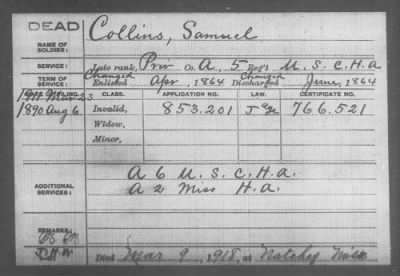 DEAD
Collins, Samuel
NAME OF SOLDIER:
SERVICE: Late rank, Priv Co. A, 5 Reg't U. S. C. H. A
TERM OF SERVICE: Changed Enlisted Apr, 1864 Changed Discharged June, 1864
DATE OF FILING. CLASS. APPLICATION NO. LAW. CERTIFICATE NO.
1890 Aug 6. Invalid, 853.201 766.521
Widow,
Minor,
ADDITIONAL SERVICES:
A 6 U. S. C. H. a.
A 2 Miss H. a.
REMARKS:
Died Mar 9, 1918, at Natchy Miss